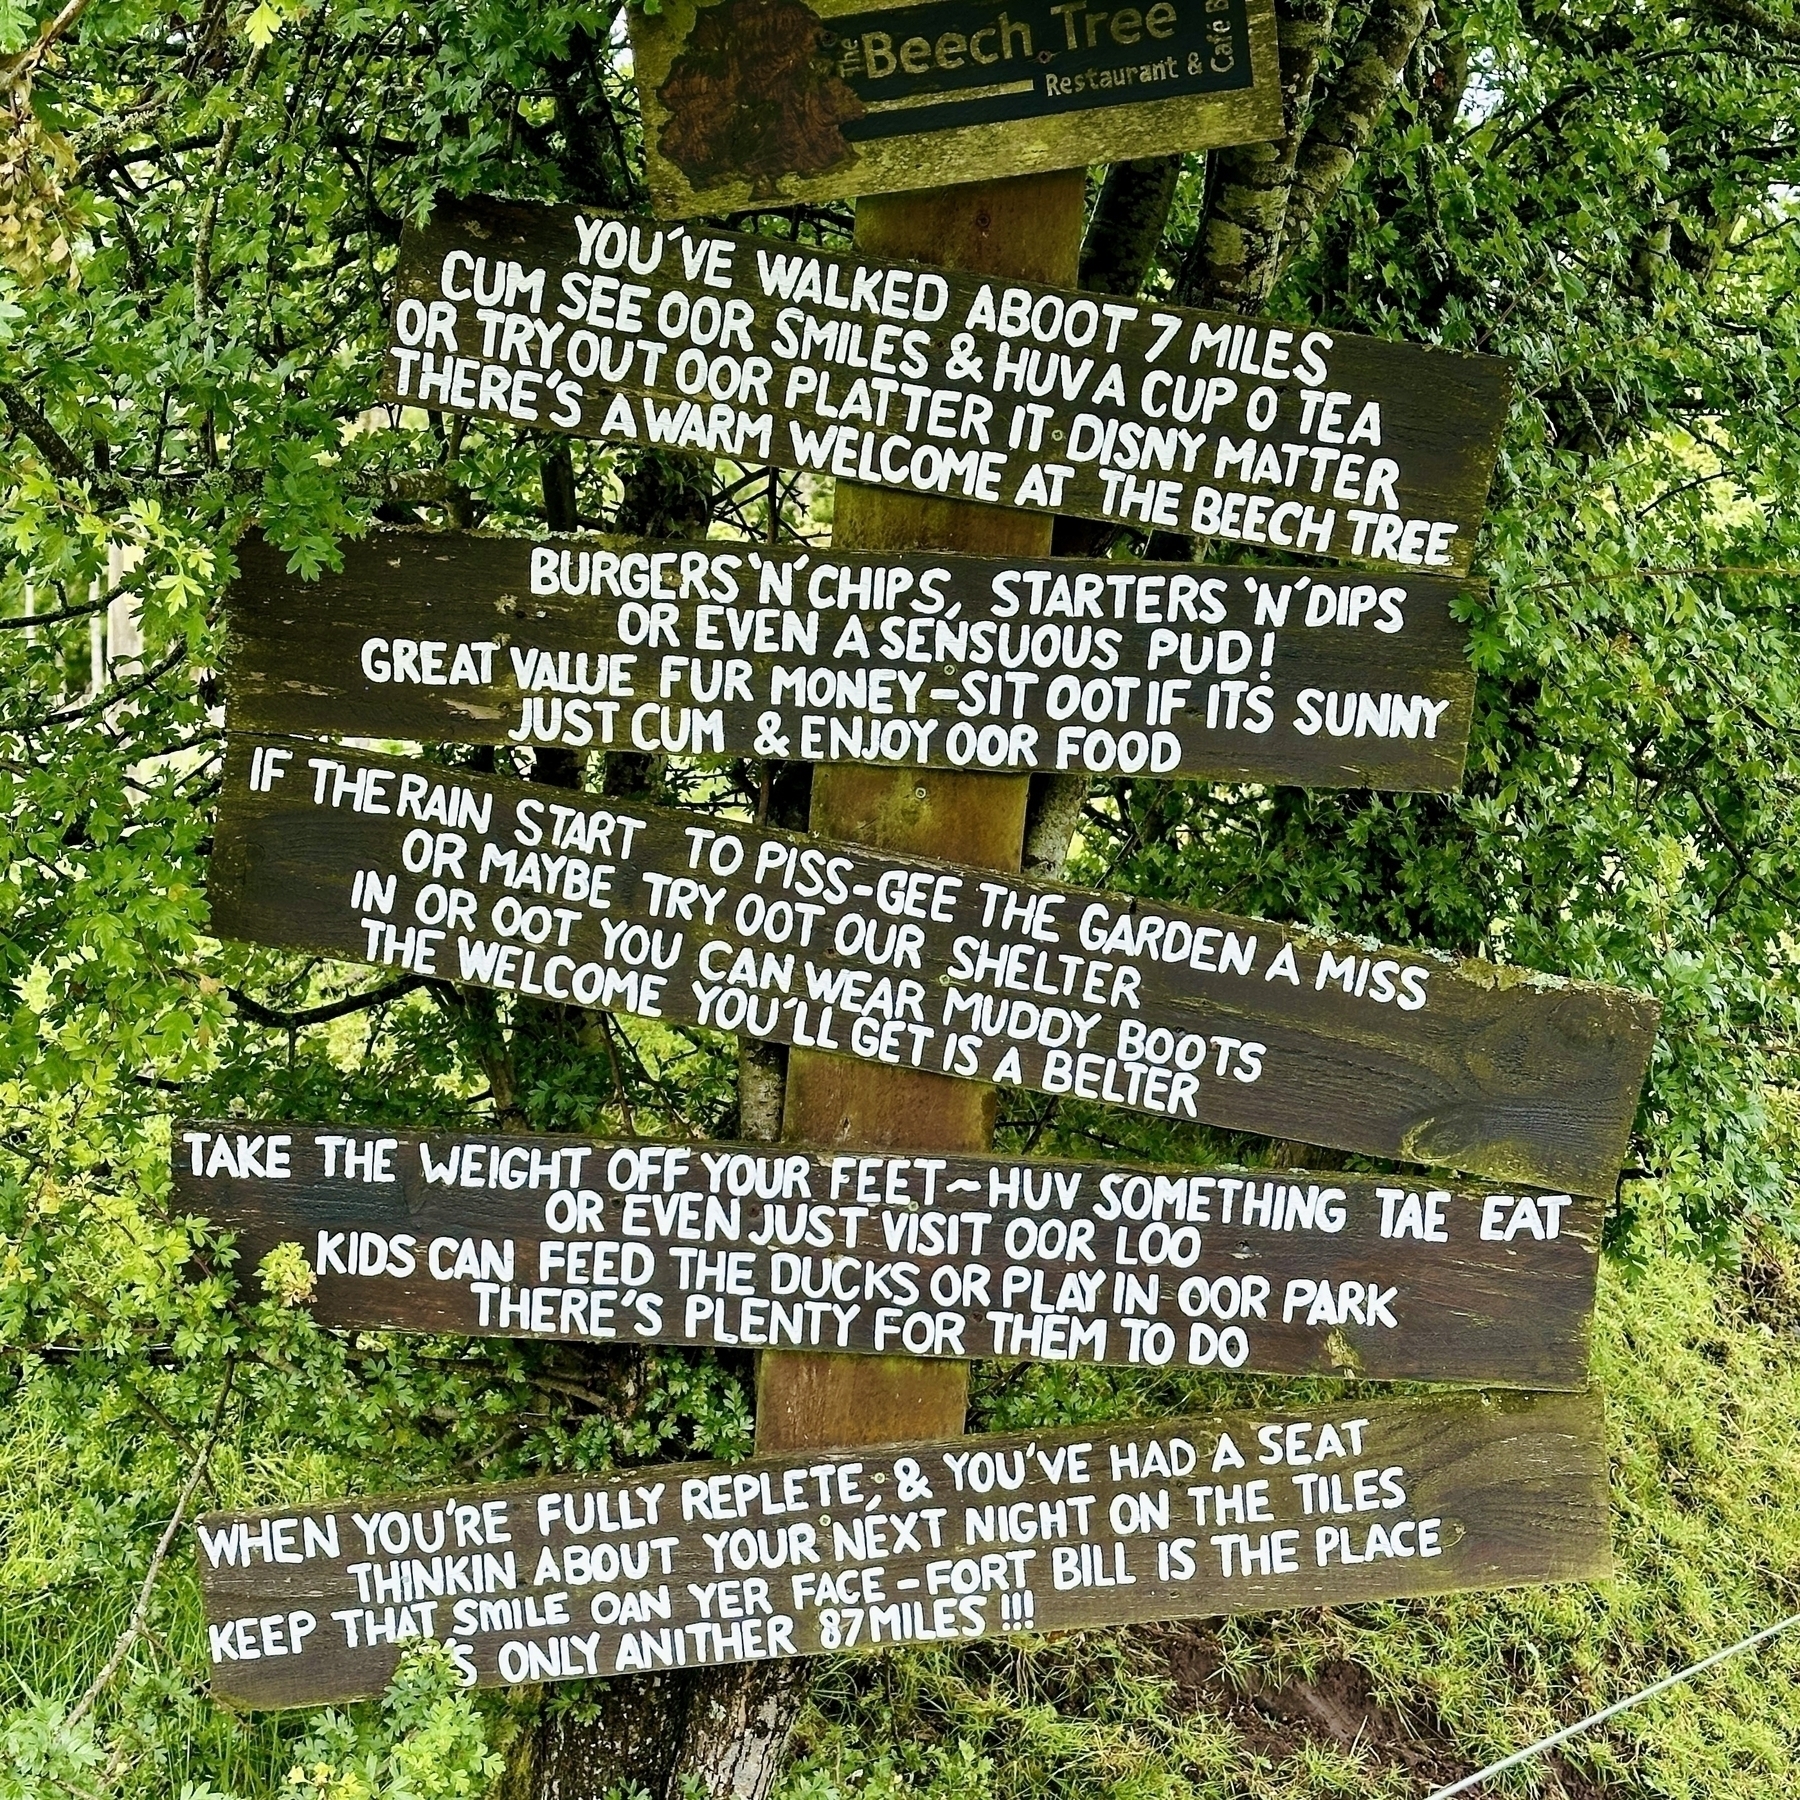 The Beech Tree
Restaurant & Café
YOU'VE WALKED ABOOT 7 MILES
CUM SEE OOR SMILES & HUV A CUP O TEA
OR TRY OUT OOR PLATTER IT DISNY MATTER
THERE'S A WARM WELCOME AT THE BEECH TREE
BURGERS 'N' CHIPS, STARTERS 'N' DIPS
OR EVEN A SENSUOUS PUD!
GREAT VALUE FUR MONEY-SIT OOT IF IT'S SUNNY
JUST CUM & ENJOY OOR FOOD
IF THE RAIN START TO PISS-GEE THE GARDEN A MISS
OR MAYBE TRY OOT OUR SHELTER
IN OR OOT YOU CAN WEAR MUDDY BOOTS
THE WELCOME YOU'LL GET IS A BELTER
TAKE THE WEIGHT OFF YOUR FEET~HUV SOMETHING TAE EAT
OR EVEN JUST VISIT OOR LOO
KIDS CAN FEED THE DUCKS OR PLAY IN OOR PARK
THERE'S PLENTY FOR THEM TO DO
WHEN YOU'RE FULLY REPLETE, & YOU'VE HAD A SEAT
THINKIN ABOUT YOUR NEXT NIGHT ON THE TILES
KEEP THAT SMILE OAN YER FACE - FORT BILL IS THE PLACE
'S ONLY ANITHER 87 MILES !!!